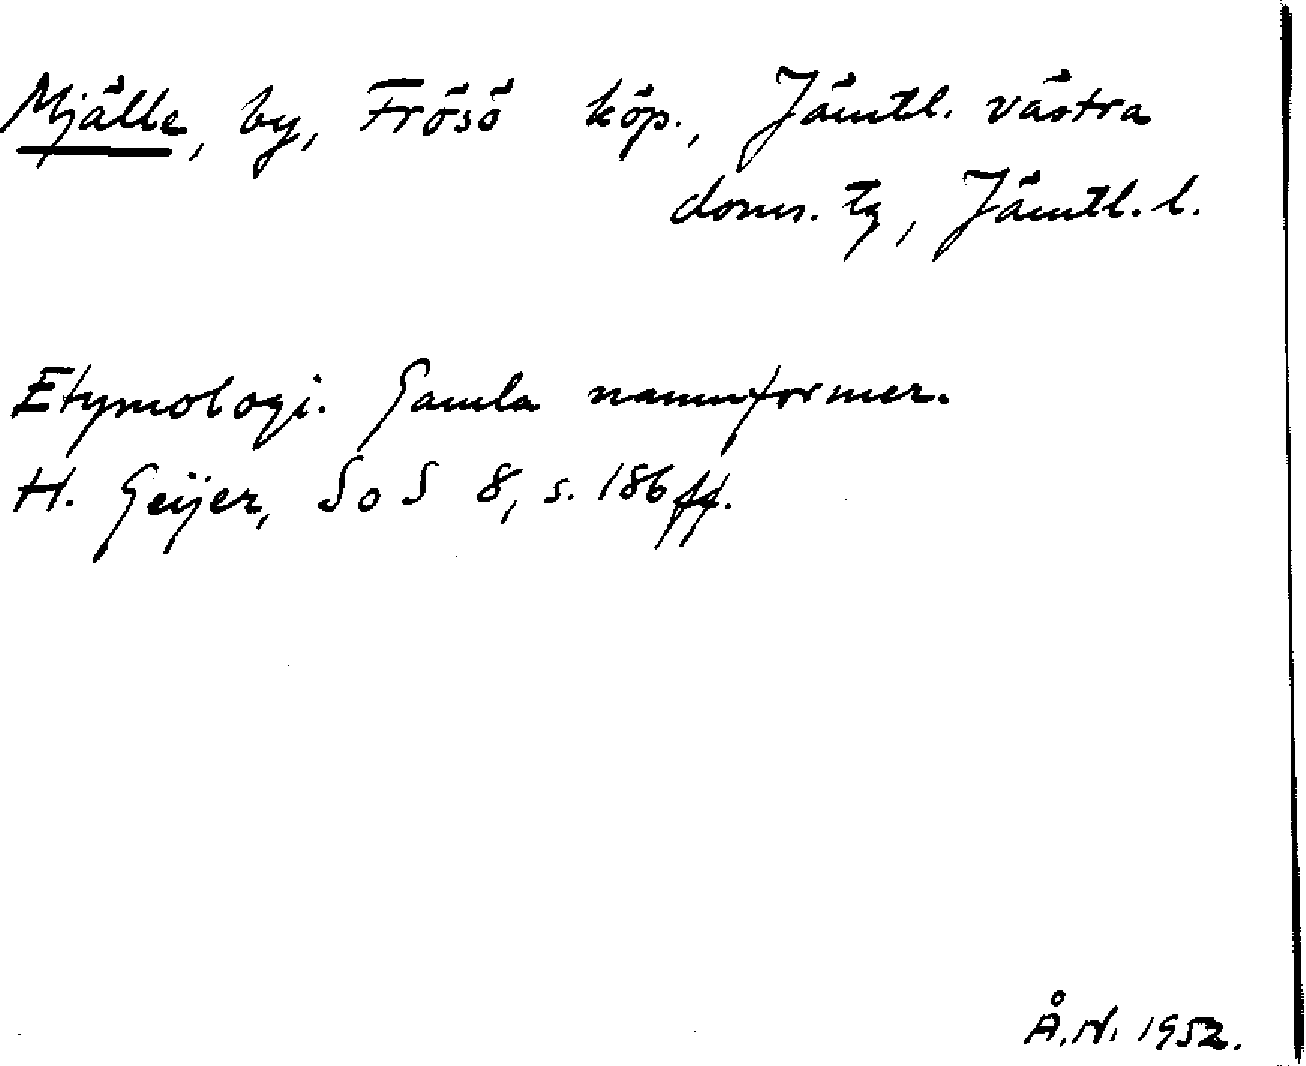 Mjälle, by, Frösö köp., Jämtl. västra
doms. tg, Jämtl. l.
Etymologi. Gamla namnformer.
H. Geijer, SoS 8, s. 186 ff.
Å.N. 1952.